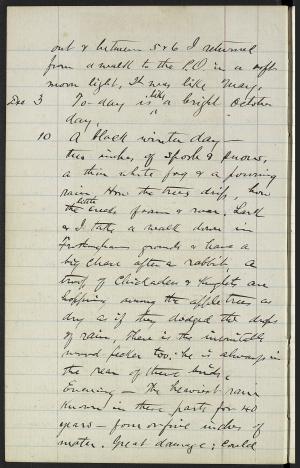 out & between 5 & 6 I returned
from a walk to the P.O. in a soft
moon light. It was like May.
Dec 3 To-day is like a bright October
day.
10 A black winter day —
two inches of sposh & snow,
a thin white fog & a pouring
rain. How the trees drip, how
the little creeks foam & roar. Lark
& I take a walk down in
Frothingham grounds & have a
big chase after a rabbit. A
troop of Chickadees & Kinglets are
hopping among the apple trees as
dry as if they dodged the drops
of rain. There is the inevitable
wood pecker too; he is always in
the rear of these birds.
Evening — The heaviest rain
known in these parts for 40
years — four or five inches of
water. Great damage; Could